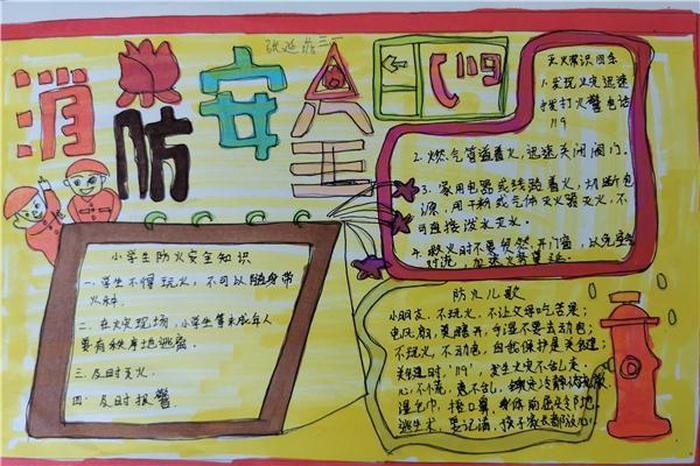 张延 三一
消防安全
119
灭火常识四条
1.发现火灾迅速
拨打火警电话
119
2.燃气管道着火,迅速关闭阀门。
3.家用电器或线路着火,切断电
源,用干粉或气体灭火器灭火,不
可直接泼水灭火。
4.救火时不要贸然开门窗,以免空气
对流,加速火势蔓延。
小学生防火安全知识
一.学生不得玩火,不可以随身带
火种.
二.在火灾现场,小学生等未成年人
要有秩序地逃离.
三.及时灭火
四.及时报警.
防火儿歌
小朋友,不玩火,不让父母吃苦果;
电风扇,莫瞎开,手湿不要去动包;
不玩火,不动电,自我保护是关键;
关键时,“119”,发生火灾不乱走.
心不慌,意不乱,冷静
湿毛巾,捂口鼻,身体前屈
逃生术,要记清,孩子家长都放心!